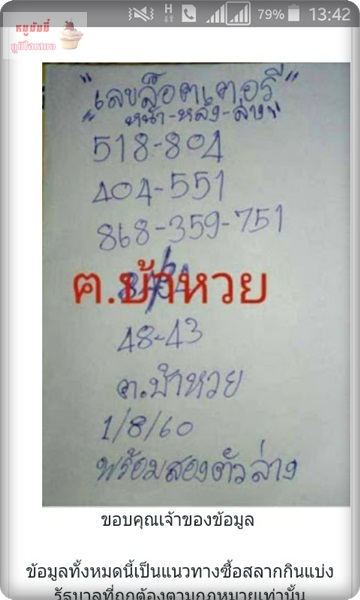 หมูบินนี่
79% 13:42
"เลขล็อตเตอรี่"
"หน้า-หลัง-ล่าง"
518-804
404-551
868-359-751
ฅ.บ้าหวย
48-43
ฅ.บ้าหวย
1/8/60
พร้อมสองตัวล่าง
ขอบคุณเจ้าของข้อมูล
ข้อมูลทั้งหมดนี้เป็นแนวทางซื้อสลากกินแบ่ง
รัฐบาลที่ถูกต้องตามกฎหมายเท่านั้น